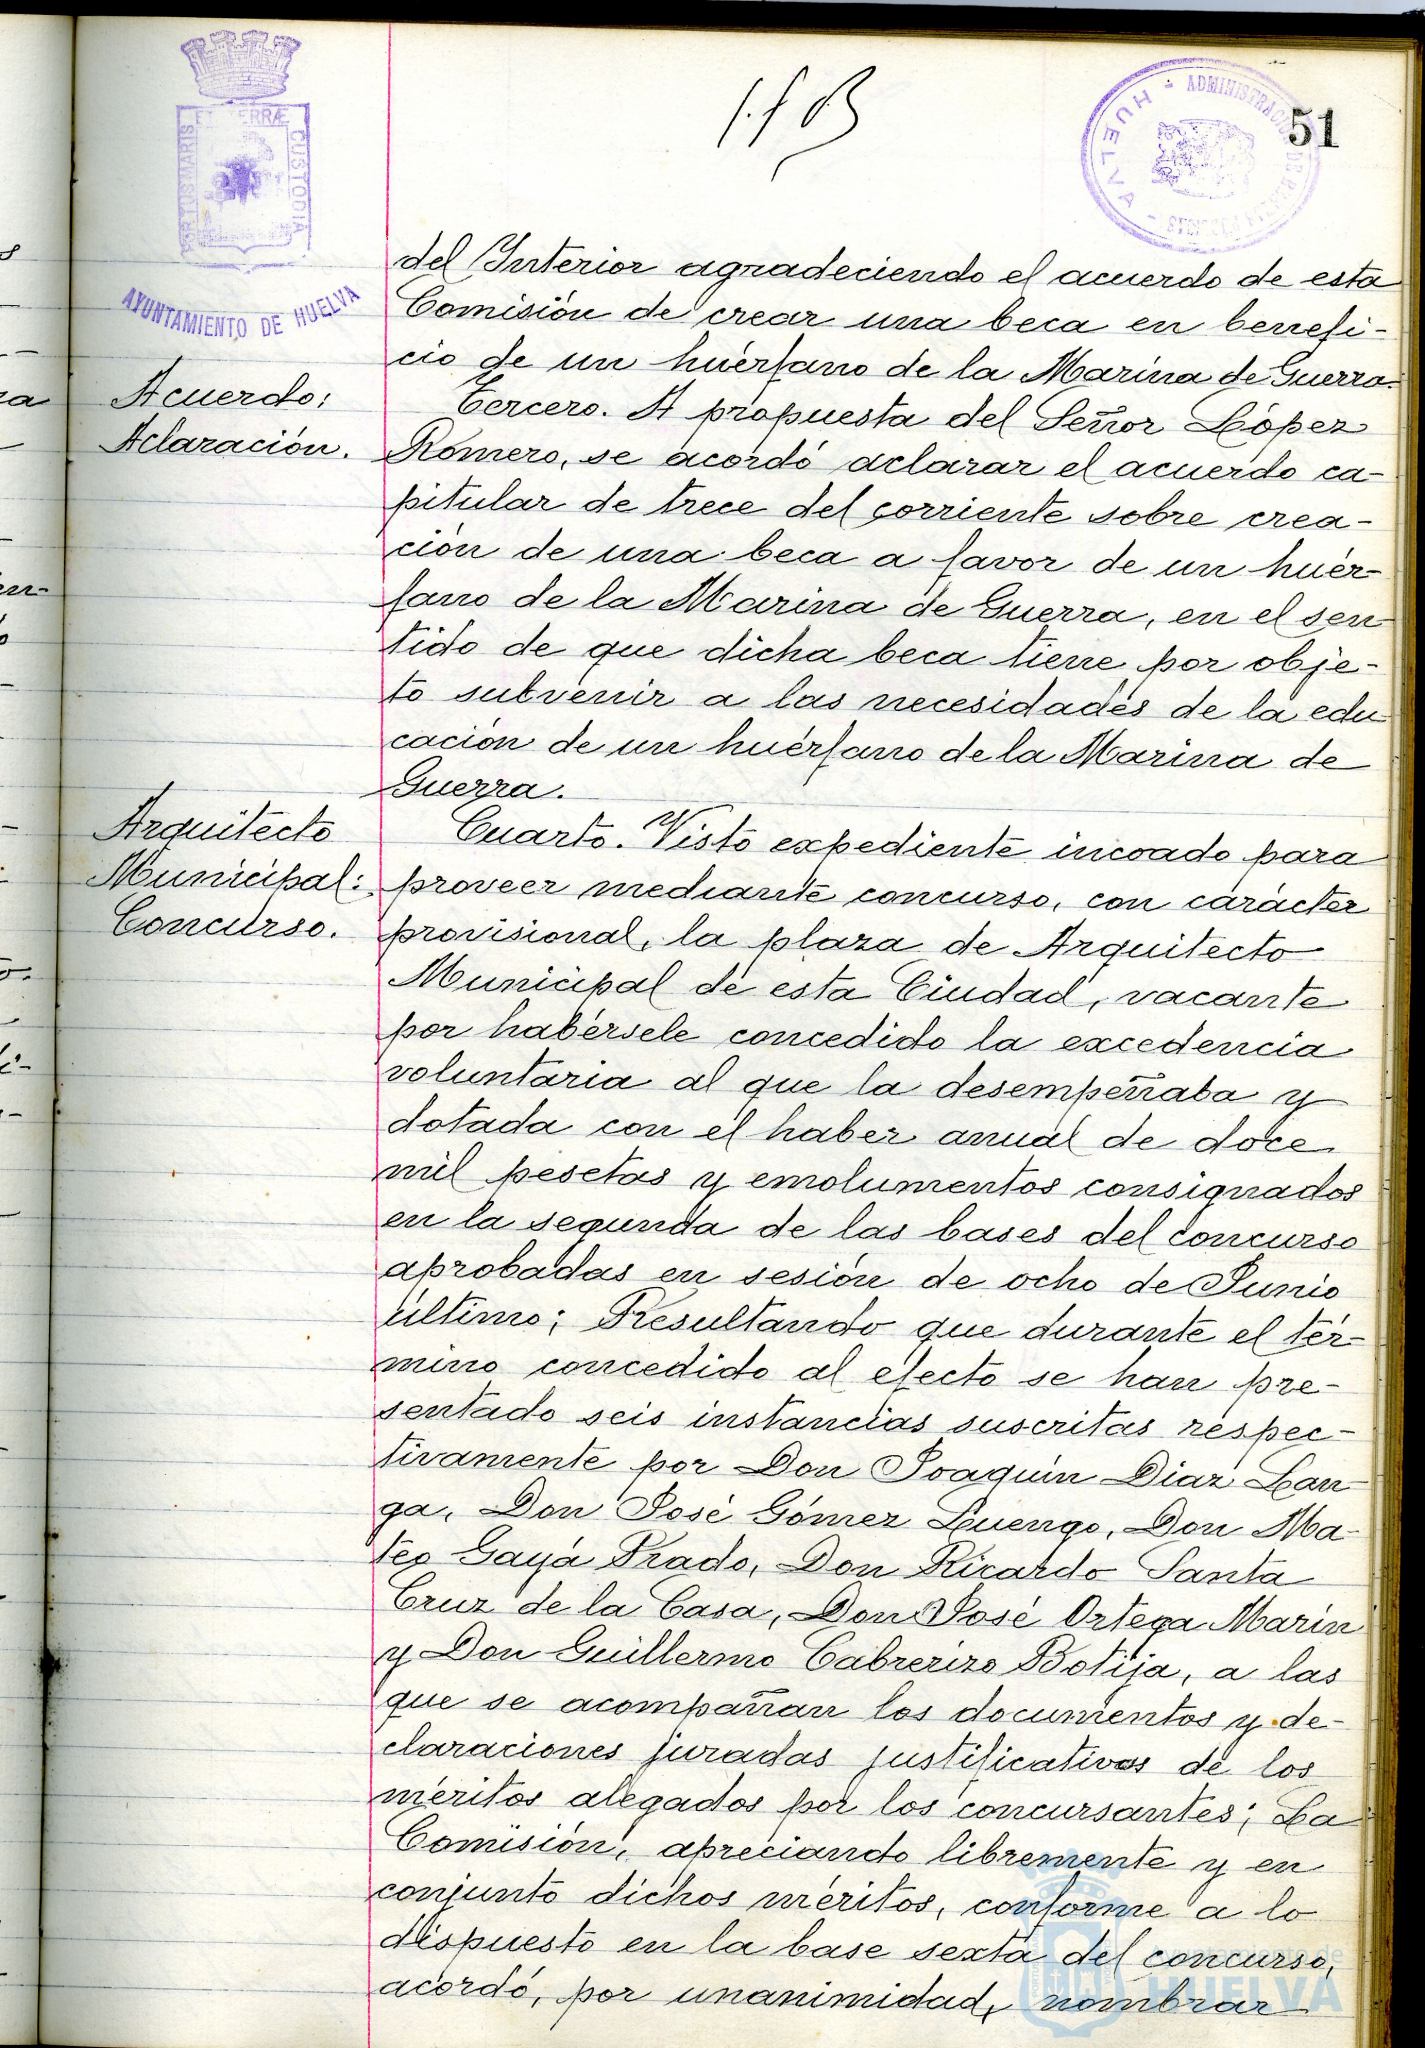 51
PORTUS MARIS ET TERRÆ CUSTODIA
AYUNTAMIENTO DE HUELVA
HUELVA
del Interior agradeciendo el acuerdo de esta
Comisión de crear una beca en benefi-
cio de un huérfano de la Marina de Guerra.
Acuerdo:
Aclaración.
Tercero. A propuesta del Señor López
Romero, se acordó aclarar el acuerdo ca-
pitular de trece del corriente sobre crea-
ción de una beca a favor de un huér-
fano de la Marina de Guerra, en el sen
tido de que dicha beca tiene por obje-
to subvenir a las necesidades de la edu
cación de un huérfano de la Marina de
Guerra.
Arquitecto
Municipal:
Concurso.
Cuarto. Visto expediente incoado para
proveer mediante concurso, con carácter
provisional, la plaza de Arquitecto
Municipal de esta Ciudad, vacante
por habérsele concedido la excedencia
voluntaria al que la desempeñaba y
dotada con el haber anual de doce
mil pesetas y emolumentos consignados
en la segunda de las bases del concurso
aprobadas en sesión de ocho de Junio
último; Resultando que durante el tér-
mino concedido al efecto se han pre-
sentado seis instancias suscritas respec-
tivamente por Don Joaquín Díaz Lan
ga, Don José Gómez Luengo, Don Ma-
teo Gayá Prado, Don Ricardo Santa
Cruz de la Casa, Don José Ortega Marín
y Don Guillermo Cabrerizo Botija, a las
que se acompañan los documentos y de-
claraciones juradas justificativos de los
méritos alegados por los concursantes; La
Comisión, apreciando libremente y en
conjunto dichos méritos, conforme a lo
dispuesto en la base sexta del concurso,
acordó, por unanimidad, nombrar
Ayuntamiento de
HUELVA